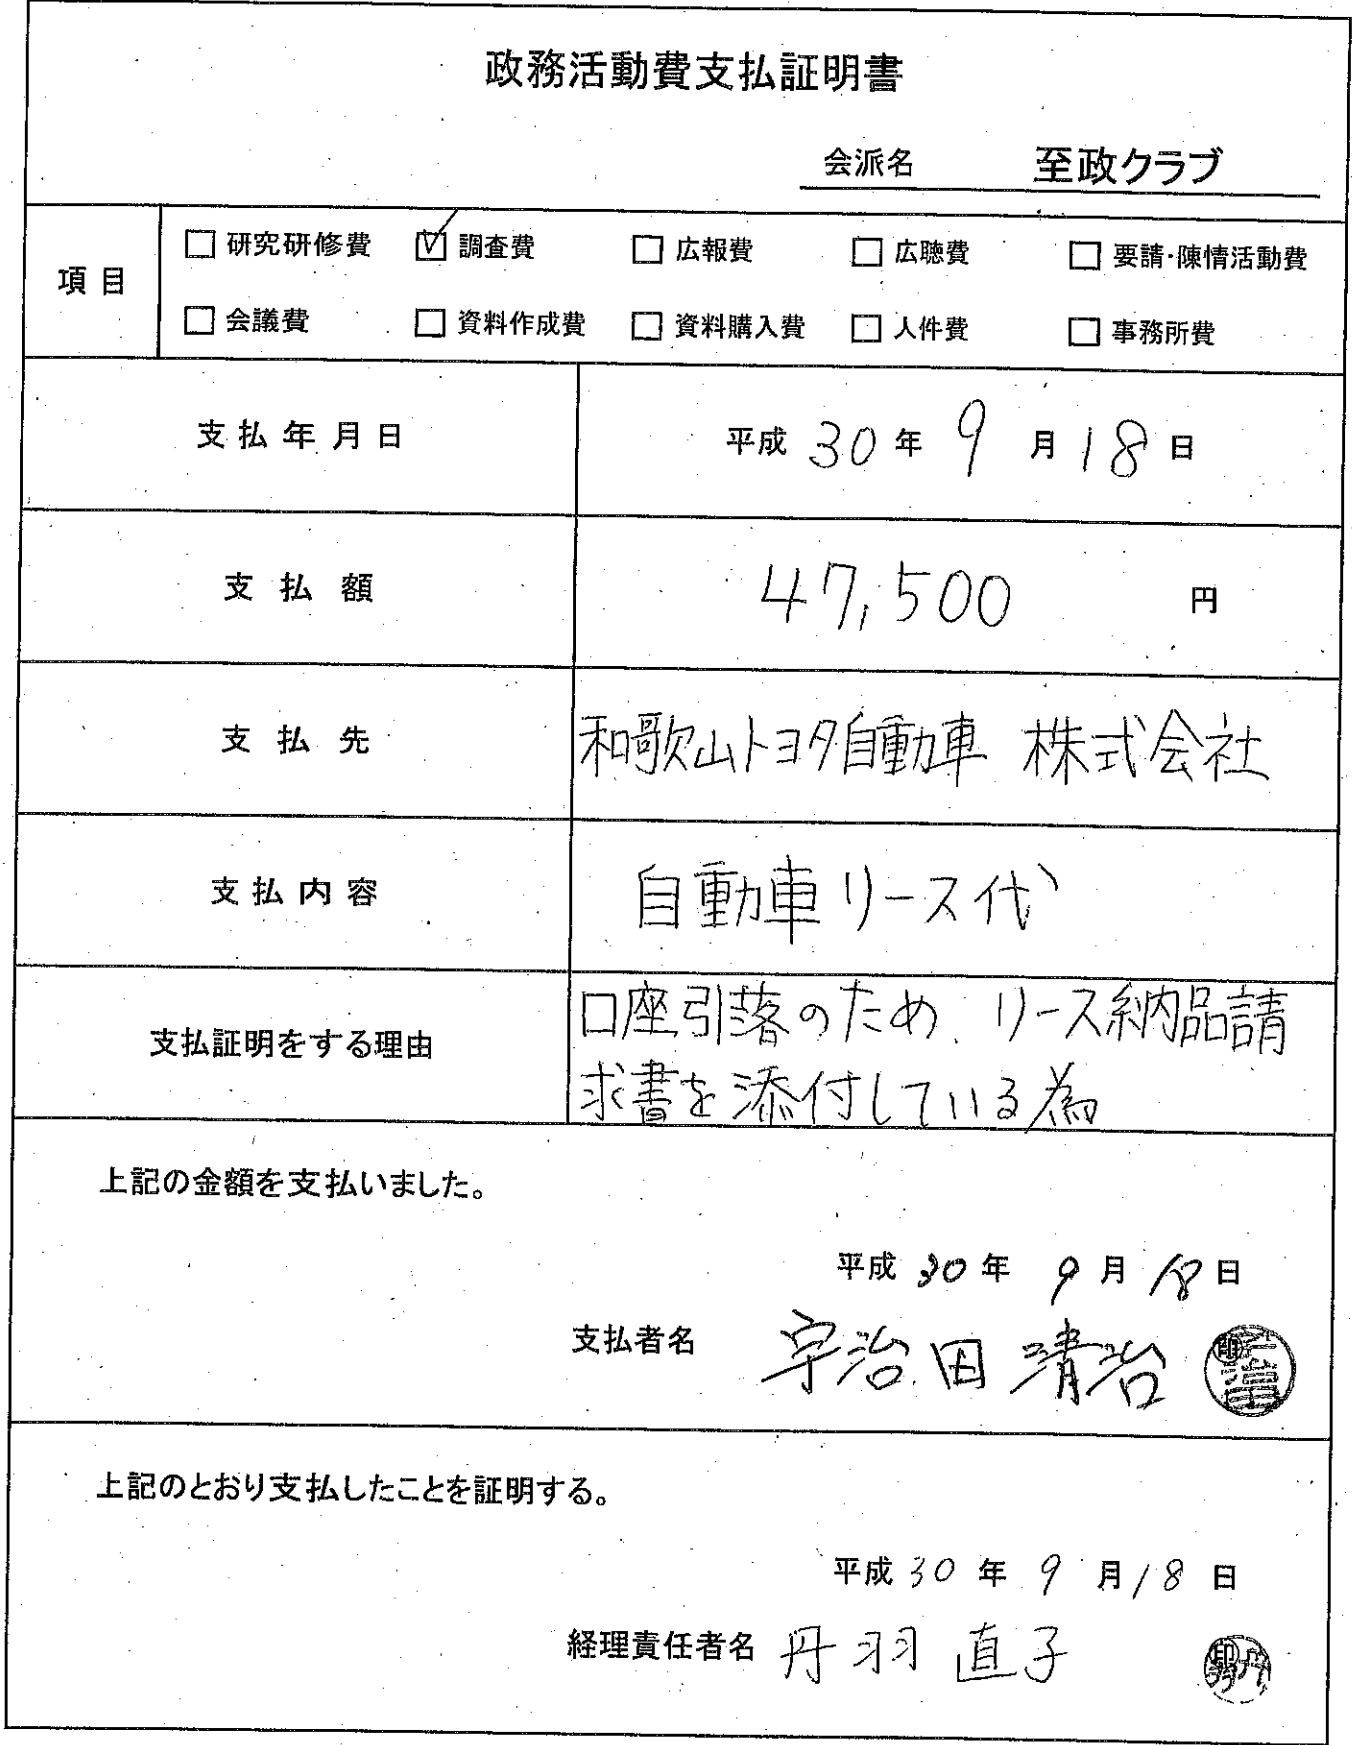 政務活動費支払証明書
会派名 至政クラブ
項目
□ 研究研修費 ☑ 調査費 □ 広報費 □ 広聴費 □ 要請・陳情活動費
□ 会議費 □ 資料作成費 □ 資料購入費 □ 人件費 □ 事務所費
支払年月日 平成 30 年 9 月 18 日
支払額 47,500 円
支払先 和歌山トヨタ自動車 株式会社
支払内容 自動車リース代
支払証明をする理由 口座引落のため、リース納品請
求書を添付している為
上記の金額を支払いました。
平成 30 年 9 月 18 日
支払者名 宇治田 清治 印 宇治田
上記のとおり支払したことを証明する。
平成 30 年 9 月 18 日
経理責任者名 丹羽 直子 印 丹羽